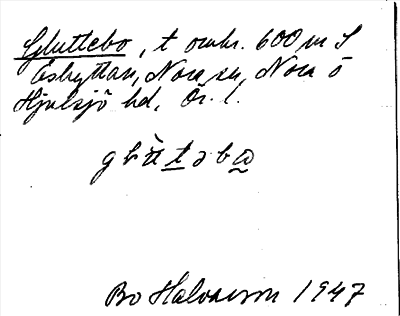 Gluttebo, t omkr. 600 m S
Åshyttan, Nora sn, Nora o
Hjulsjö hd, Ör. l.
Bo Halvarson 1947